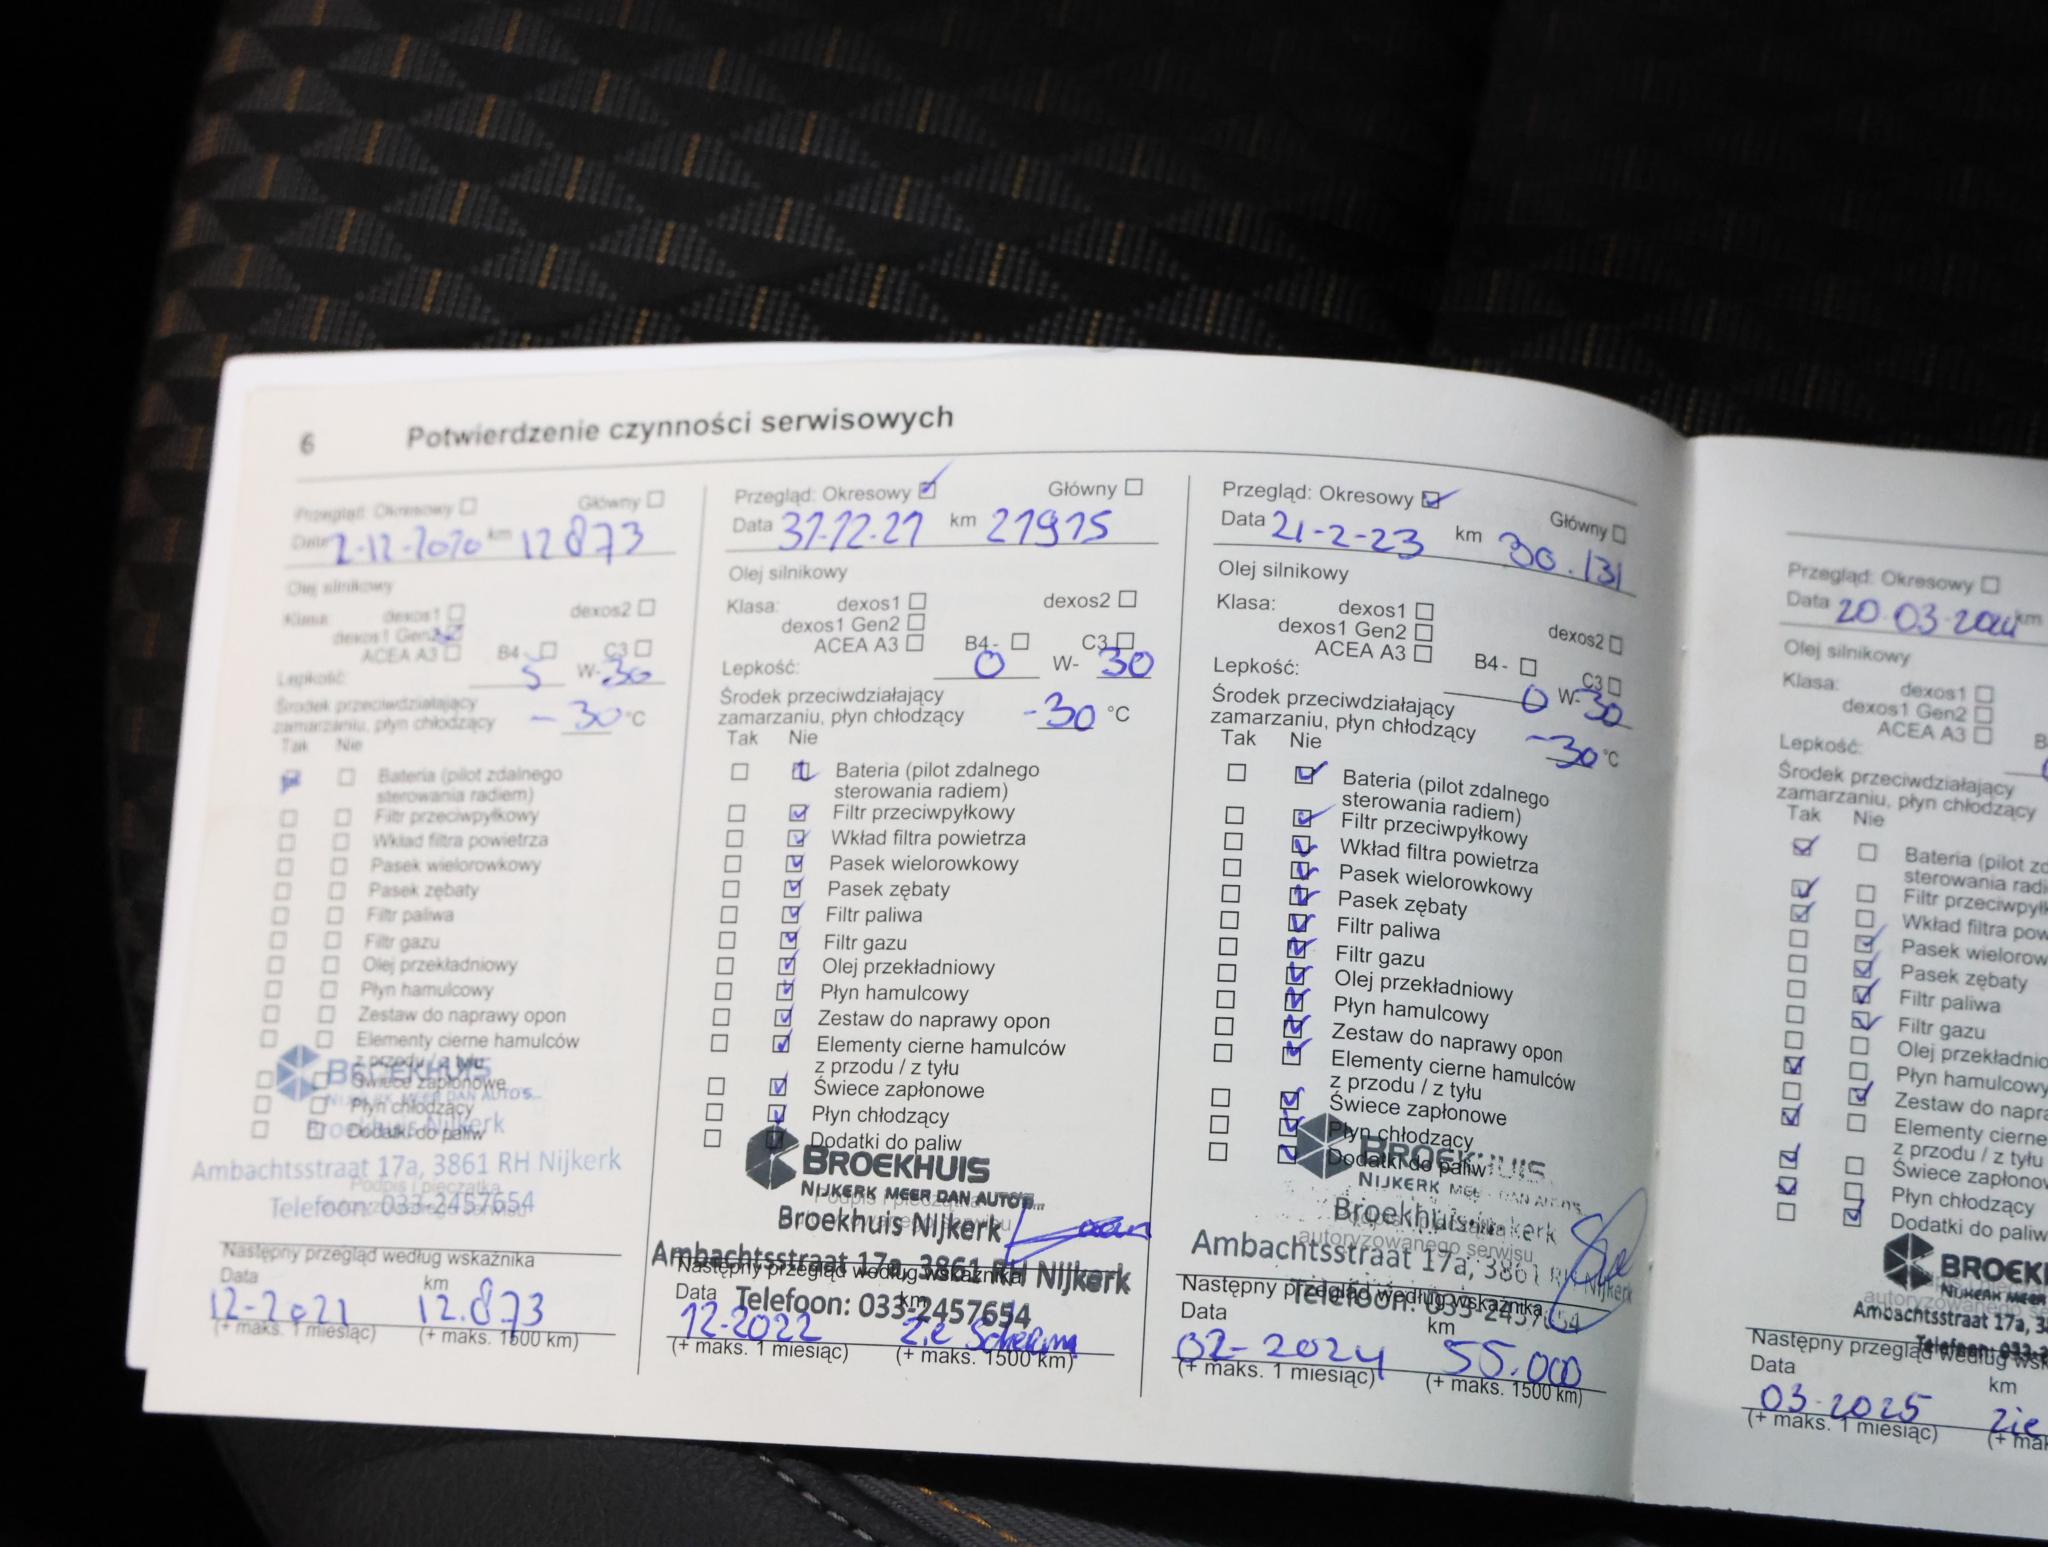 6 Potwierdzenie czynności serwisowych
Przegląd: Okresowy Główny
Data 2-12-2020 km 12873
Olej silnikowy
Klasa: dexos1 dexos2
dexos1 Gen2
ACEA A3 B4- C3
Lepkość: 5 W-30
Środek przeciwdziałający
zamarzaniu, płyn chłodzący -30 °C
Tak Nie
Bateria (pilot zdalnego
sterowania radiem)
Filtr przeciwpyłkowy
Wkład filtra powietrza
Pasek wielorowkowy
Pasek zębaty
Filtr paliwa
Filtr gazu
Olej przekładniowy
Płyn hamulcowy
Zestaw do naprawy opon
Elementy cierne hamulców
z przodu / z tyłu
Świece zapłonowe
Płyn chłodzący
Dodatki do paliw
BROEKHUIS
NIJKERK MEER DAN AUTO'S...
Broekhuis Nijkerk
Ambachtsstraat 17a, 3861 RH Nijkerk
Podpis i pieczątka
Telefoon: 033-2457654
Następny przegląd według wskaźnika
Data km
12-2021 12.873
(+ maks. 1 miesiąc) (+ maks. 1500 km)
Przegląd: Okresowy Główny
Data 31-12-21 km 21915
Olej silnikowy
Klasa: dexos1 dexos2
dexos1 Gen2
ACEA A3 B4- C3
Lepkość: 0 W-30
Środek przeciwdziałający
zamarzaniu, płyn chłodzący -30 °C
Tak Nie
Bateria (pilot zdalnego
sterowania radiem)
Filtr przeciwpyłkowy
Wkład filtra powietrza
Pasek wielorowkowy
Pasek zębaty
Filtr paliwa
Filtr gazu
Olej przekładniowy
Płyn hamulcowy
Zestaw do naprawy opon
Elementy cierne hamulców
z przodu / z tyłu
Świece zapłonowe
Płyn chłodzący
Dodatki do paliw
BROEKHUIS
NIJKERK MEER DAN AUTO'S...
Podpis i pieczątka
Broekhuis Nijkerk
Ambachtsstraat 17a, 3861 RH Nijkerk
Następny przegląd według wskaźnika
Data km
Telefoon: 033-2457654
12-2022 zie Schema
(+ maks. 1 miesiąc) (+ maks. 1500 km)
Przegląd: Okresowy Główny
Data 21-2-23 km 30.131
Olej silnikowy
Klasa: dexos1 dexos2
dexos1 Gen2
ACEA A3 B4- C3
Lepkość: 0 W-30
Środek przeciwdziałający
zamarzaniu, płyn chłodzący -30 °C
Tak Nie
Bateria (pilot zdalnego
sterowania radiem)
Filtr przeciwpyłkowy
Wkład filtra powietrza
Pasek wielorowkowy
Pasek zębaty
Filtr paliwa
Filtr gazu
Olej przekładniowy
Płyn hamulcowy
Zestaw do naprawy opon
Elementy cierne hamulców
z przodu / z tyłu
Świece zapłonowe
Płyn chłodzący
Dodatki do paliw
BROEKHUIS
NIJKERK MEER DAN AUTO'S
Broekhuis Nijkerk
autoryzowanego serwisu
Ambachtsstraat 17a, 3861 RH Nijkerk
Następny przegląd według wskaźnika
Telefoon: 033-2457654
Data km
02-2024 55.000
(+ maks. 1 miesiąc) (+ maks. 1500 km)
Przegląd: Okresowy
Data 20-03-2024 km
Olej silnikowy
Klasa: dexos1
dexos1 Gen2
ACEA A3
Lepkość:
Środek przeciwdziałający
zamarzaniu, płyn chłodzący
Tak Nie
Bateria (pilot zd
sterowania radi
Filtr przeciwpyłk
Wkład filtra pow
Pasek wielorow
Pasek zębaty
Filtr paliwa
Filtr gazu
Olej przekładnio
Płyn hamulcowy
Zestaw do napra
Elementy cierne
z przodu / z tyłu
Świece zapłonow
Płyn chłodzący
Dodatki do paliw
BROEK
NIJKERK MEER
autoryzowanego se
Ambachtsstraat 17a, 3
Następny przegląd według wsk
Telefoon: 033-2
Data km
03-2025 zie
(+ maks. 1 miesiąc) (+ mak